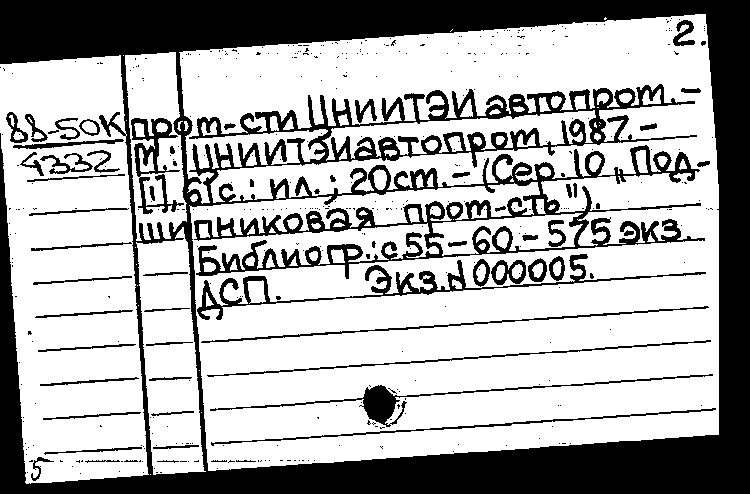 2.
88-50К пром-сти ЦНИИТЭИавтопром.-
4332 М.: ЦНИИТЭИавтопром, 1987.-
[1], 61с.: ил.; 20см.- (Сер. 10 „Под-
шипниковая пром-сть").
Библиогр.: с.55-60.- 575 экз.
ДСП. Экз.N 000005.
5